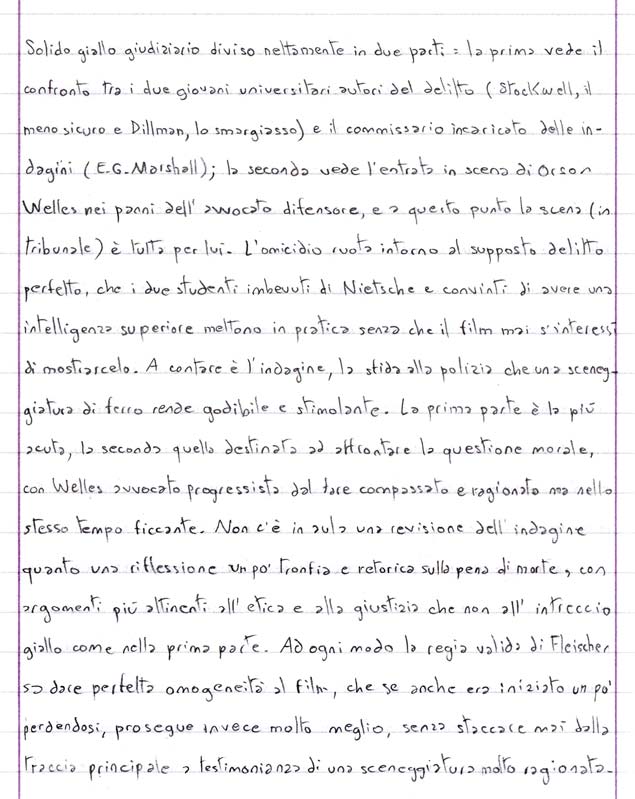 Solido giallo giudiziario diviso nettamente in due parti: la prima vede il
confronto tra i due giovani universitari autori del delitto (Stockwell, il
meno sicuro e Dillman, lo smargiasso) e il commissario incaricato delle in-
dagini (E.G. Marshall); la seconda vede l'entrata in scena di Orson
Welles nei panni dell'avvocato difensore, e a questo punto la scena (in
tribunale) è tutta per lui. L'omicidio ruota intorno al supposto delitto
perfetto, che i due studenti imbevuti di Nietsche e convinti di avere una
intelligenza superiore mettono in pratica senza che il film mai s'interessi
di mostrarcelo. A contare è l'indagine, la sfida alla polizia che una sceneg-
giatura di ferro rende godibile e stimolante. La prima parte è la più
acuta, la seconda quella destinata ad affrontare la questione morale,
con Welles avvocato progressista dal fare compassato e ragionato ma nello
stesso tempo ficcante. Non c'è in aula una revisione dell'indagine
quanto una riflessione un po' tronfia e retorica sulla pena di morte, con
argomenti più attinenti all'etica e alla giustizia che non all'intreccio
giallo come nella prima parte. Ad ogni modo la regia valida di Fleischer
sa dare perfetta omogeneità al film, che se anche era iniziato un po'
perdendosi, prosegue invece molto meglio, senza staccare mai dalla
traccia principale a testimonianza di una sceneggiatura molto ragionata.